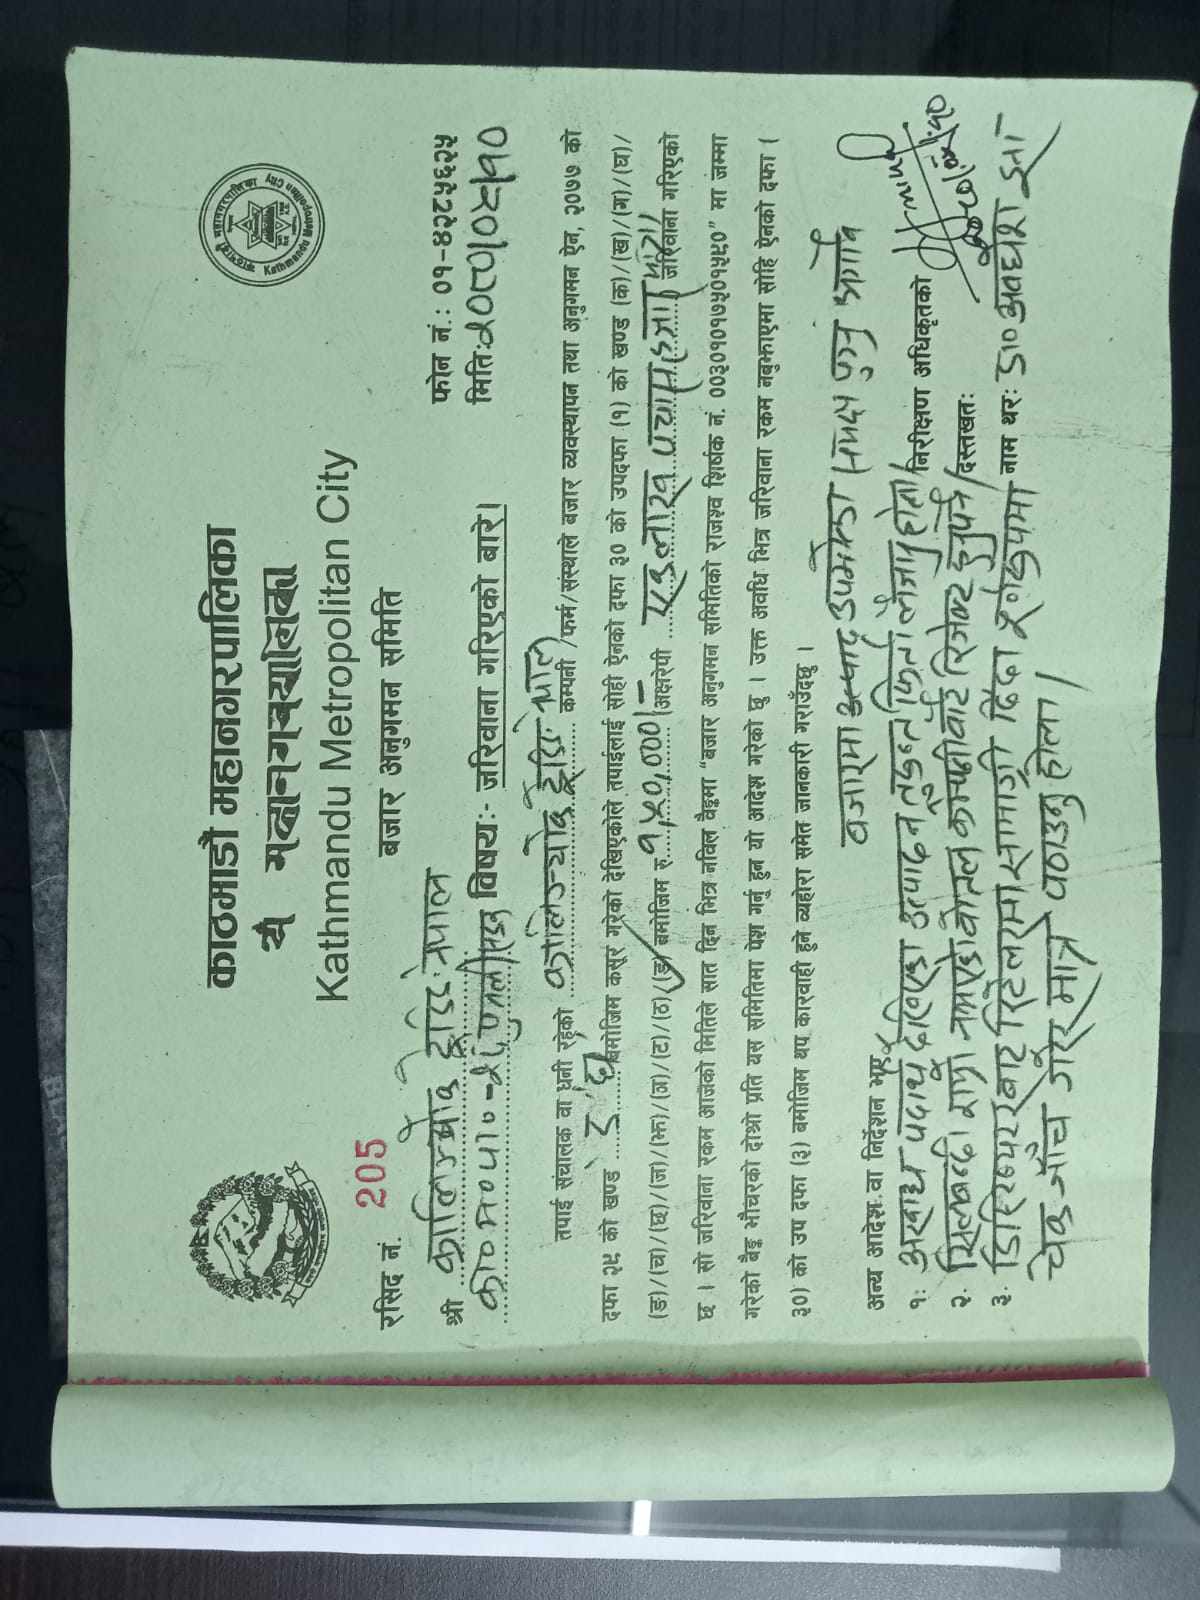 काठमाडौं महानगरपालिका
यें महानगरपालिका
Kathmandu Metropolitan City
रसिद नं. 205
बजार अनुगमन समिति
काठमाडौं महानगरपालिका
Kathmandu Metropolitan City
श्री ट्रेडिङ नेपाल
फोन नं.: ०१-४२८५६२५
का०म०पा०-२८ पुतलीसडक विषय:- जरिवाना गरिएको बारे।
मिति:२०८०/०५/१०
तपाई संचालक वा धनी रहेको ट्रेडिङ नेपाल कम्पनी /फर्म/संस्थाले बजार व्यवस्थापन तथा अनुगमन ऐन, २०७७ को
दफा २९ को खण्ड ङ, घ बमोजिम कसूर गरेको देखिएकोले तपाईलाई सोही ऐनको दफा ३० को उपदफा (१) को खण्ड (क)/(ख)/(ग)/(घ)/
(ङ)/(च)/(छ)/(ज)/(झ)/(ञ)/(ट)/(ठ)/(ड) बमोजिम रु १,५०,०००/- अक्षरेपी एकलाख पचास हजार मात्र। जरिवाना गरिएको
छ । सो जरिवाना रकम आजको मितिले सात दिन भित्र नविल वैङ्कमा “बजार अनुगमन समितिको राजश्व शिर्षक नं. ००३०१०१७५०१५९०” मा जम्मा
गरेको बैङ्क भौचरको दोश्रो प्रति यस समितिमा पेश गर्नु हुन यो आदेश गरेको छु । उक्त अवधि भित्र जरिवाना रकम नबुझाएमा सोहि ऐनको दफा (
३०) को उप दफा (३) बमोजिम थप कारवाही हुने व्यहोरा समेत जानकारी गराउँदछु ।
बजारमा उत्पाद उपभोक्ता समक्ष पुग्नु अगावै
अन्य आदेश वा निर्देशन भए
१: अखाद्य पदार्थ देखिएका उत्पादन तुरुन्त फिर्ता लैजानु होला। निरीक्षण अधिकृतको
२. सिलबन्दी राम्रो नभएको बोतल कम्पनीबाटै रिजेक्ट हुनुपर्ने। दस्तखत:
२०८०/०५/१०
३. डिस्ट्रिब्युटरबाट रिटेलरमा सामाग्री दिंदा नाम थर: डा० अवधेश झा
चेक जाँच गरेर मात्र पठाउनु होला।